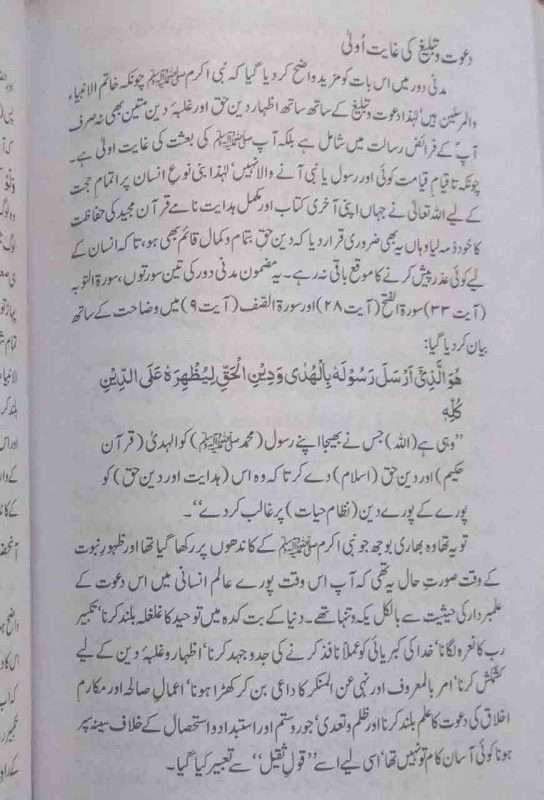 دعوت و تبلیغ کی غایت اُولیٰ
مدنی دور میں اس بات کو مزید واضح کر دیا گیا کہ نبی اکرم ﷺ چونکہ خاتم الانبیاء
والمرسلین ہیں لہٰذا دعوت و تبلیغ کے ساتھ ساتھ اظہار دین حق اور غلبۂ دین متین بھی نہ صرف
آپؐ کے فرائض رسالت میں شامل ہے بلکہ آپ ﷺ کی بعثت کی غایت اولیٰ ہے۔
چونکہ تا قیامِ قیامت کوئی اور رسول یا نبی آنے والا نہیں‘ لہٰذا بنی نوعِ انسان پر اتمامِ حجت
کے لیے اللہ تعالیٰ نے جہاں اپنی آخری کتاب اور مکمل ہدایت نامے قرآن مجید کی حفاظت
کا خود ذمہ لیا وہاں یہ بھی ضروری قرار دیا کہ دین حق بتمام و کمال قائم بھی ہو‘ تاکہ انسان کے
لیے کوئی عذر پیش کرنے کا موقع باقی نہ رہے۔ یہ مضمون مدنی دور کی تین سورتوں‘ سورۃ التوبہ
(آیت ۳۳) سورۃ الفتح (آیت ۲۸) اور سورۃ الصّف (آیت ۹) میں وضاحت کے ساتھ
بیان کر دیا گیا:
هُوَ الَّذِیْٓ اَرْسَلَ رَسُوْلَهٗ بِالْهُدٰی وَدِیْنِ الْحَقِّ لِیُظْهِرَهٗ عَلَی الدِّیْنِ
کُلِّهٖ
‘‘وہی ہے (اللہ) جس نے بھیجا اپنے رسول (محمد ﷺ) کو الہدیٰ (قرآن
حکیم) اور دین حق (اسلام) دے کر تا کہ وہ اس (ہدایت اور دین حق) کو
پورے کے پورے دین (نظام حیات) پر غالب کر دے’’۔
تو یہ تھا وہ بھاری بوجھ جو نبی اکرم ﷺ کے کاندھوں پر رکھا گیا تھا اور ظہورِ نبوت
کے وقت صورتِ حال یہ تھی کہ آپ اس وقت پورے عالم انسانی میں اس دعوت کے
علمبردار کی حیثیت سے بالکل یکہ و تنہا تھے۔ دنیا کے بت کدہ میں توحید کا غلغلہ بلند کرنا‘ تکبیرِ
رب کا نعرہ لگانا‘ خدا کی کبریائی کو عملاً نافذ کرنے کی جدوجہد کرنا‘ اظہار و غلبۂ دین کے لیے
کشمکش کرنا‘ امر بالمعروف اور نہی عن المنکر کا داعی بن کر کھڑا ہونا‘ اعمالِ صالحہ اور مکارم
اخلاق کی دعوت کا علم بلند کرنا اور ظلم و تعدی‘ جور و ستم اور استبداد و استحصال کے خلاف سینہ سپر
ہونا کوئی آسان کام تو نہیں تھا‘ اسی لیے اسے ‘‘قولِ ثقیل’’ سے تعبیر کیا گیا۔